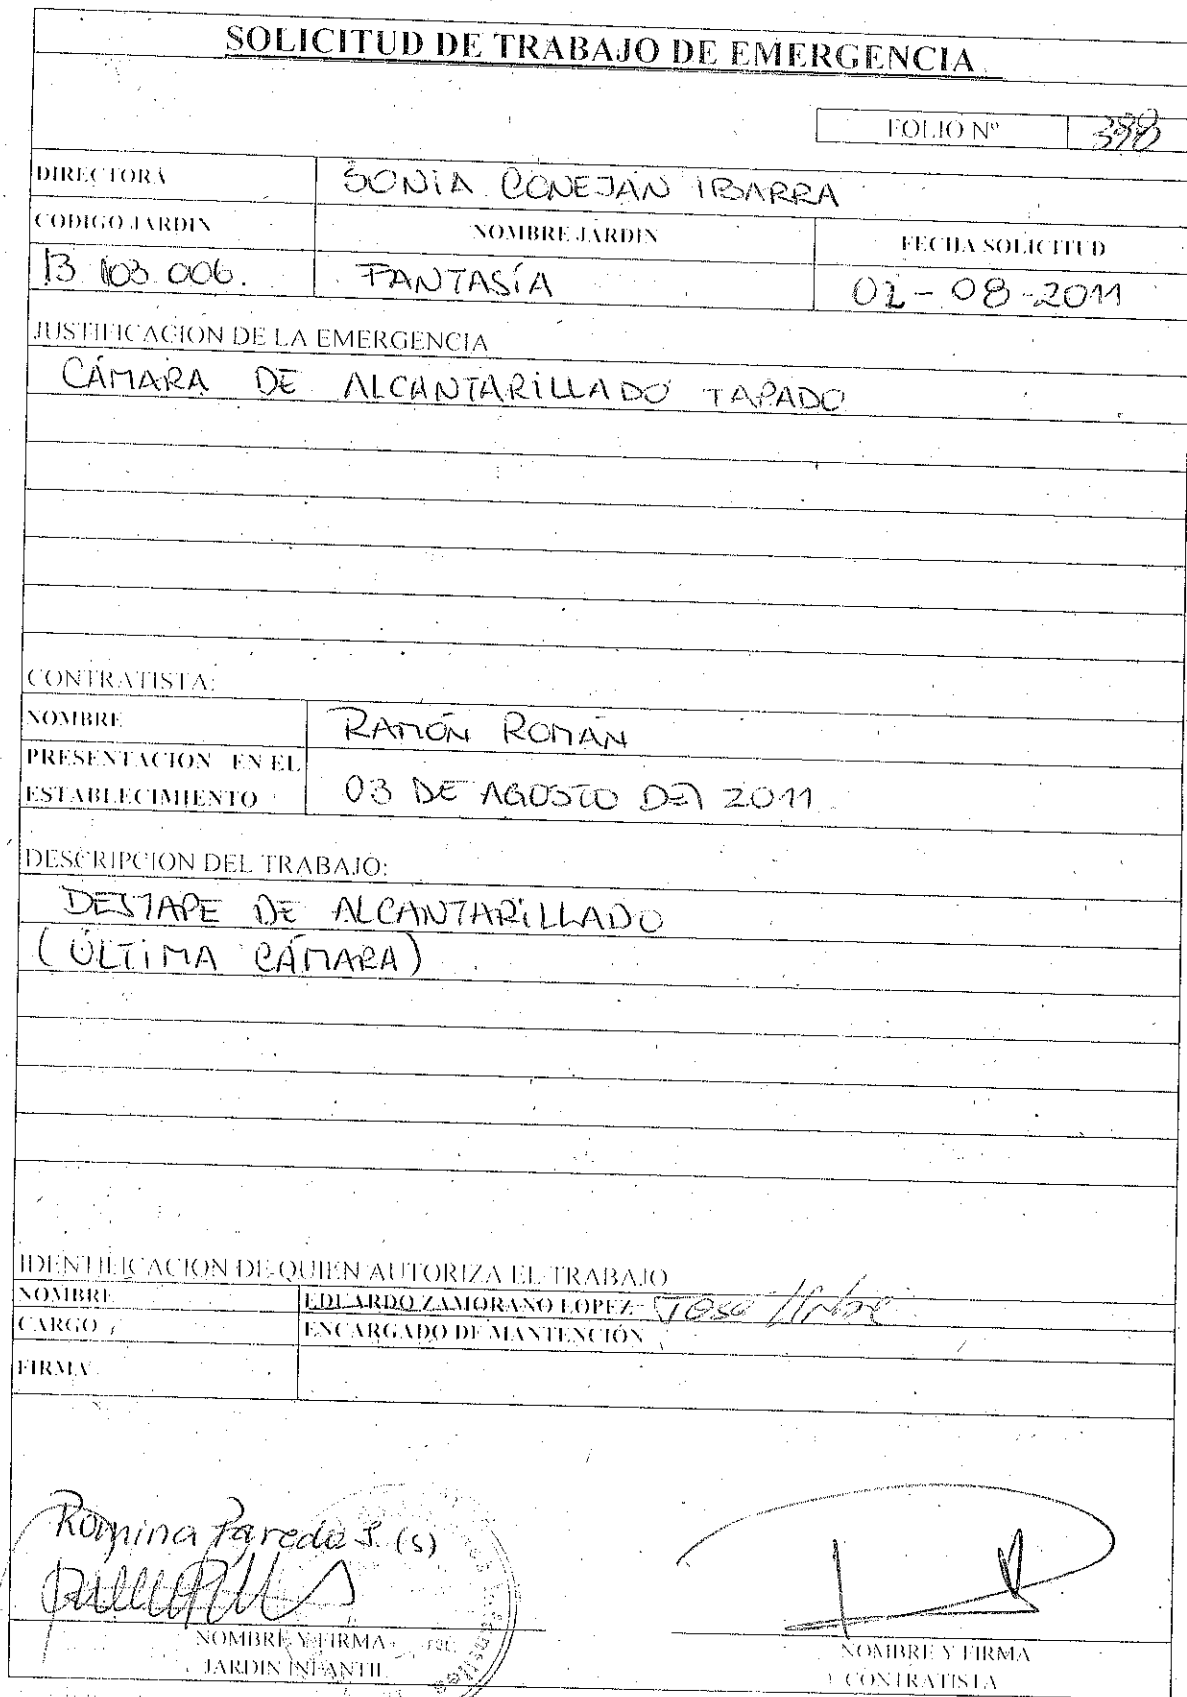 SOLICITUD DE TRABAJO DE EMERGENCIA
FOLIO Nº 398
DIRECTORA SONIA CONEJAN IBARRA
CODIGO JARDIN NOMBRE JARDIN FECHA SOLICITUD
13.103.006. FANTASÍA 02-08-2011
JUSTIFICACION DE LA EMERGENCIA
CÁMARA DE ALCANTARILLADO TAPADO
CONTRATISTA:
NOMBRE RAMÓN ROMÁN
PRESENTACION EN EL
ESTABLECIMIENTO 03 DE AGOSTO DEL 2011
DESCRIPCION DEL TRABAJO:
DESTAPE DE ALCANTARILLADO
(ÚLTIMA CÁMARA)
IDENTIFICACION DE QUIEN AUTORIZA EL TRABAJO
NOMBRE EDUARDO ZAMORANO LOPEZ José
CARGO ENCARGADO DE MANTENCIÓN
FIRMA
Romina Paredes S. (s)
NOMBRE Y FIRMA
JARDIN INFANTIL
NOMBRE Y FIRMA
CONTRATISTA